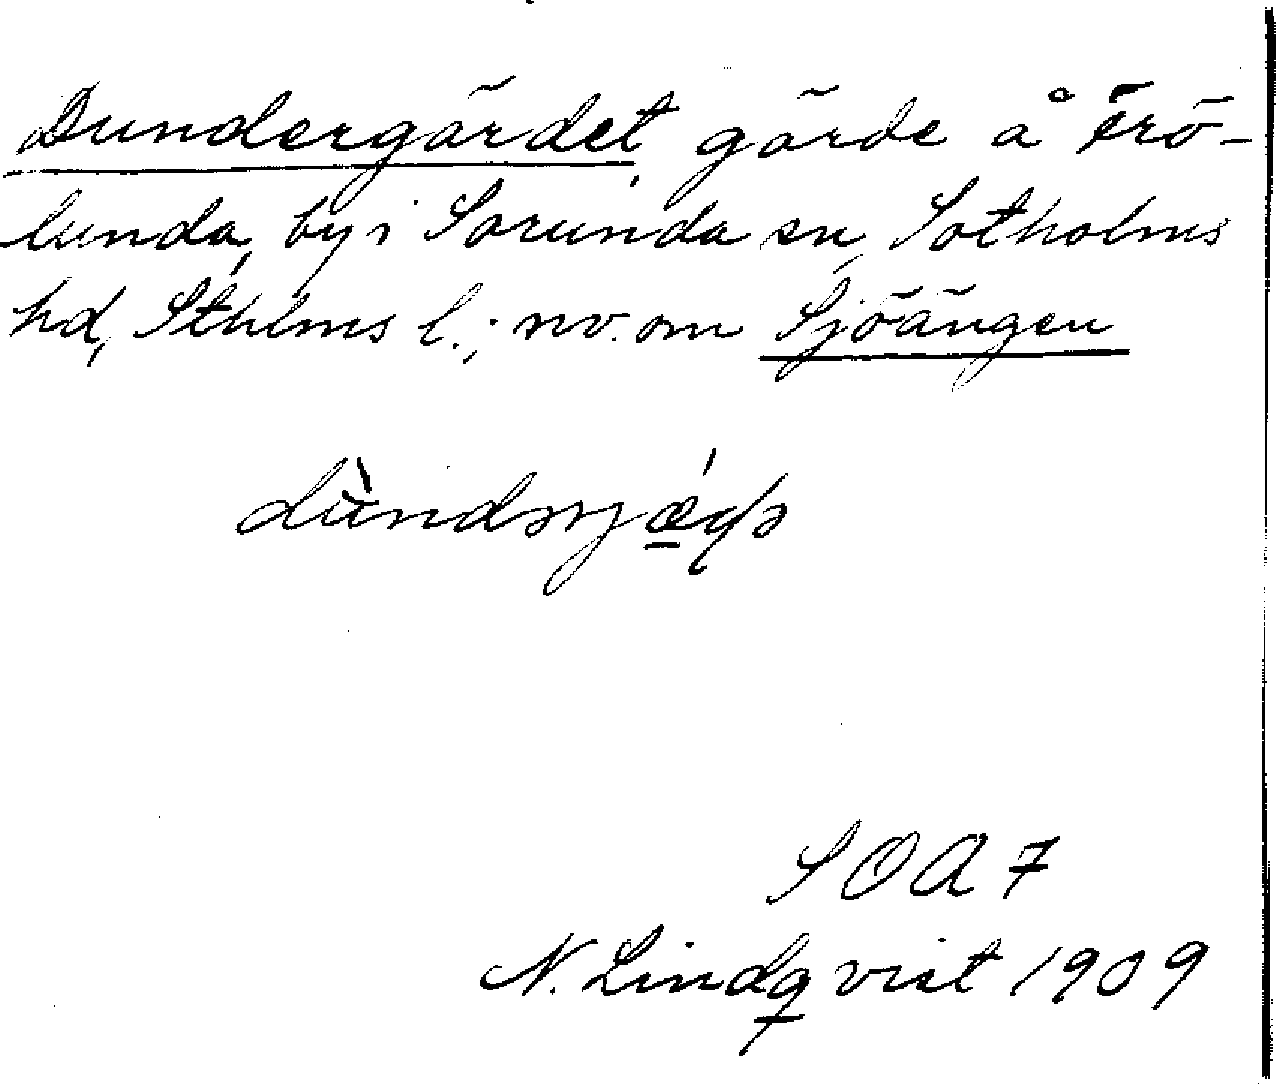 Dundergärdet, gärde å Trö-
lunda, by i Sorunda sn, Sotholms
hd, Sthlms l.; nv. om Sjöängen
SOA 7
N. Lindqvist 1909